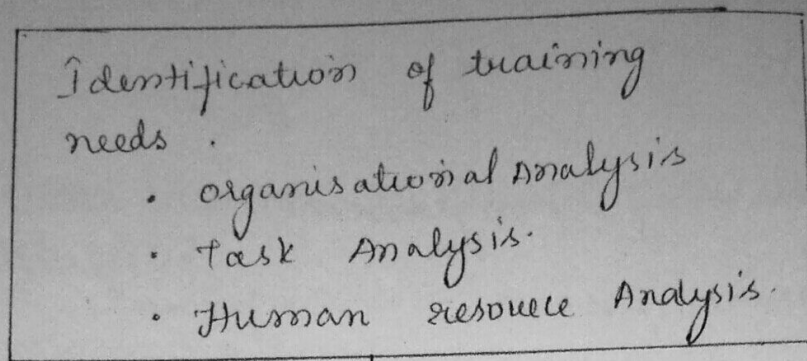 Identification of training
needs .
• organisational Analysis
• Task Analysis.
• Human resource Analysis.